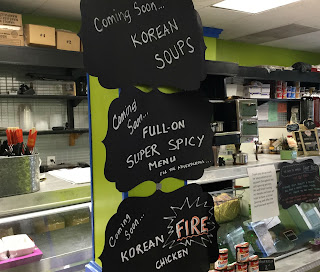 Coming Soon...
KOREAN
SOUPS
Coming
Soon...
FULL-ON
SUPER SPICY
MENU
Coming
Soon...
KOREAN FIRE
CHICKEN